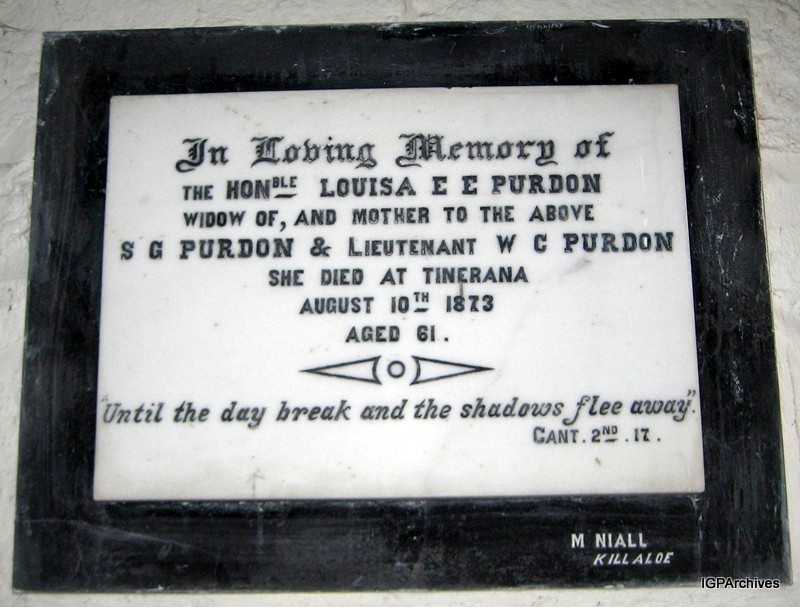 In Loving Memory of
THE HONBLE LOUISA E E PURDON
WIDOW OF, AND MOTHER TO THE ABOVE
S G PURDON & LIEUTENANT W C PURDON
SHE DIED AT TINERANA
AUGUST 10TH 1873
AGED 61.
"Until the day break and the shadows flee away".
CANT. 2ND. 17.
M NIALL
KILLALOE
IGPArchives